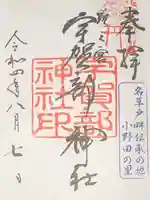 奉拝
名草戸畔伝承の地
小野田の里
之宮
宇賀部神社
宇賀部
神社印
令和四年八月七日